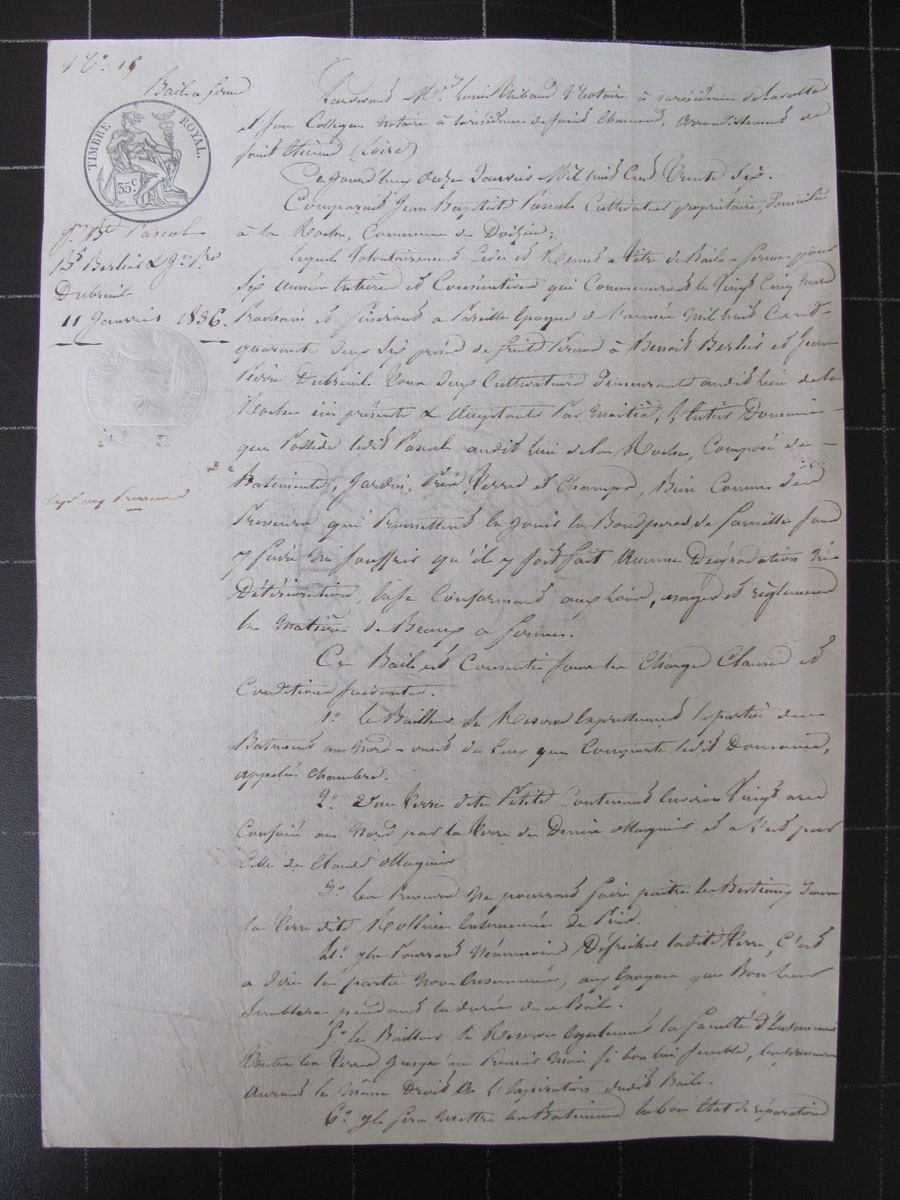 N° 15
Bail à ferme
TIMBRE ROYAL.
35 C
Jn Bte Pascal
Bt Berlier & Jn Pre
Dubreuil
11 Janvier 1836.
Pardevant Me Louis notaire à la résidence de
et son Collègue notaire à la résidence de Saint Chamond, arrondissement de
Saint Etienne (Loire)
Ce jourd'hui onze Janvier Mil huit Cent Trente Six.
Comparait Jean Baptiste Pascal Cultivateur propriétaire, Domicilié
à la Roche, Commune de Doizieu;
lequel Volontairement Cède et Remet à titre de Bail à ferme pour
Six années Entières et Consécutives qui Commenceront le Vingt Cinq Mars
Prochain et finiront à Pareille époque de l'année Mil huit Cent
quarante deux Six prises de fruits Perçus à Benoit Berlier et Jean
Pierre Dubreuil Tous deux Cultivateurs Demeurants audit lieu de la
Roche ici présents & acceptants Par Moitié, l'Entier Domaine
que Possède ledit Pascal audit lieu de la Roche, Composé de
Batiments, Jardin, Prés, Terres et Champs, Bien Connu des
Preneurs qui Promettent en jouir en Bons pères de famille sans
y faire ni souffrir qu'il y soit fait aucune Dégradation ni
Détérioration, Conformant aux lois, usages et règlements
En Matière de Beaux à ferme.
Ce Bail est Consenti sous les Charges Clauses et
Conditions suivantes.
1° le Bailleur Se Réserve Expressément la partie de
Batiment au Nord-ouest de Ceux que Comporte ledit Domaine,
appelée Chambre.
2° Une Terre dite Petite Contenant Environ Vingt ares
Confinée au Nord par la Terre de Magnin et à l'Est par
Celle de Claude Magnin
3° les Preneurs Ne pourront faire paitre les Bestiaux dans
la Terre dite Ensemencée de Pins.
4° ils Pourront Néanmoins Défricher ladite Terre, C'est
à Dire la partie Non Ensemencée, aux époques que Bon leur
Semblera pendant la durée de ce Bail.
5° le Bailleur Se Réserve également la faculté d'Ensemencer
Toutes les Terres Jusqu'au Premier Mai si bon lui semble, les preneurs
Auront le Même Droit à l'Expiration dudit Bail.
6° il fera Mettre les Batiments en bon état de réparations